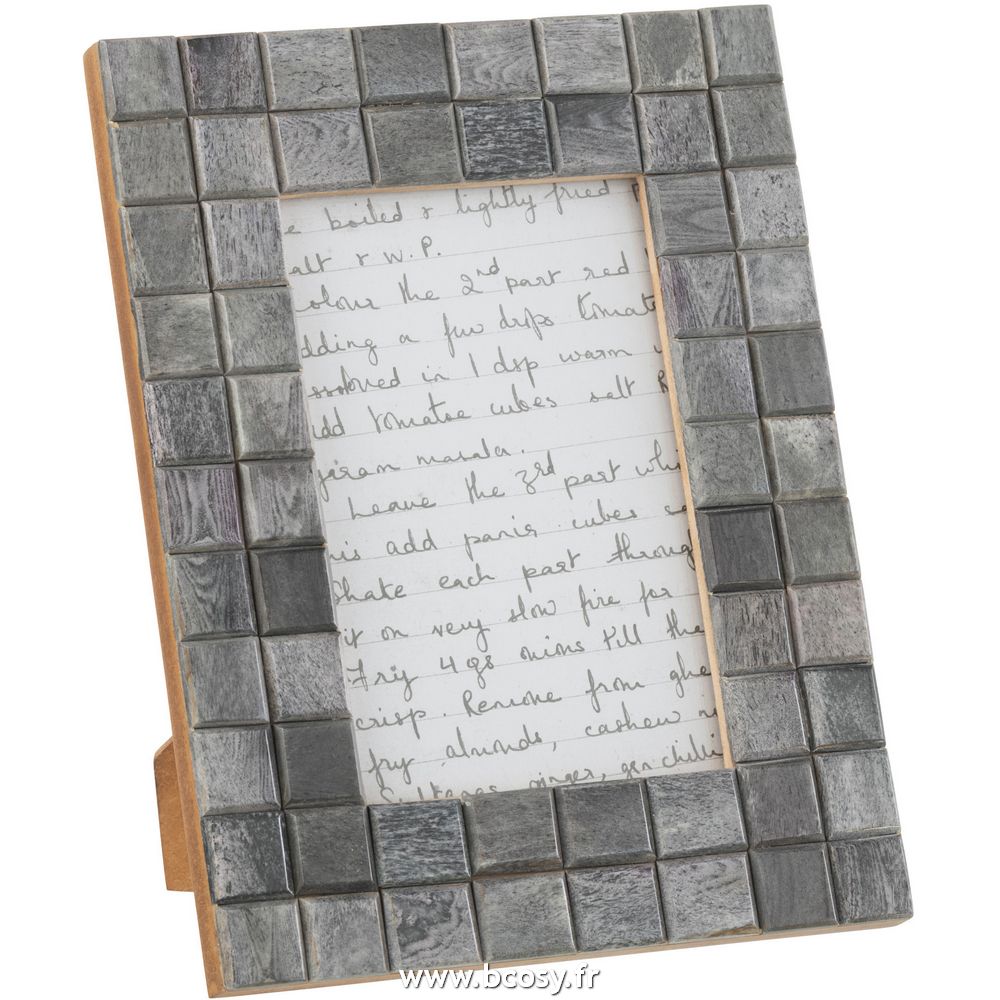 e boiled & lightly fried
alt & W.P.
olour the 2nd part red
dding a few drops tomato
ssolved in 1 dsp warm
dd tomatoe cubes salt
garam masala.
Leave the 3rd part whi
his add panir cubes sa
Shake each part throug
it on very slow fire for
Fry 4 gs mins till tha
crisp. Remove from ghe
fry almonds, cashew n
Sultanas ginger, gen chilli
www.bcosy.fr